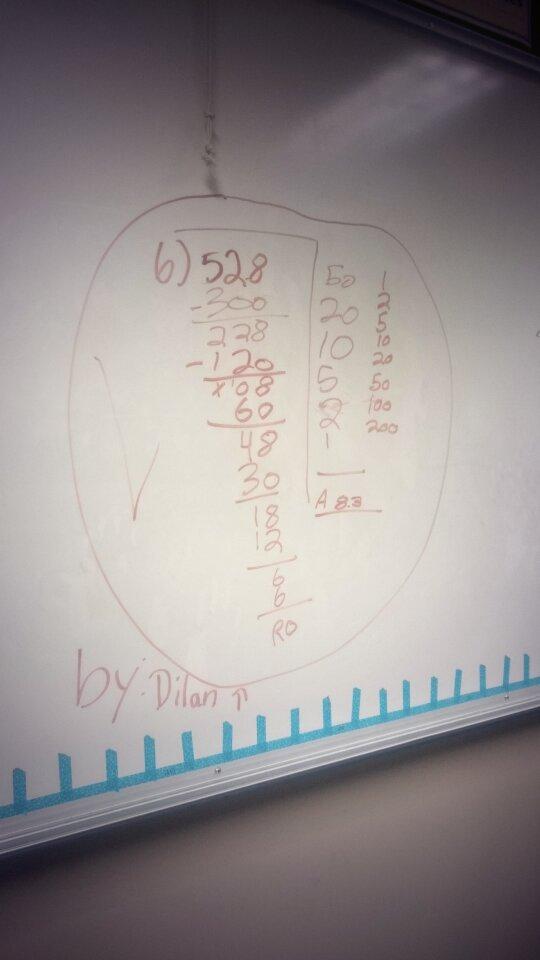 6) 528 50 1
-300 20 2
228 10 5
-120 5 10
108 2 20
60 1 50
48 A 83 100
30 200
18
12
6
6
R0
by: Dilan